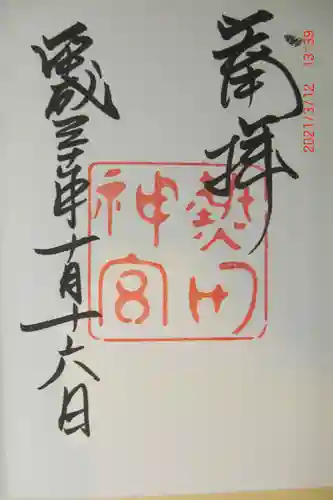 奉拝
熱田
神宮
平成三十年十月十六日
2021/3/12 13:39